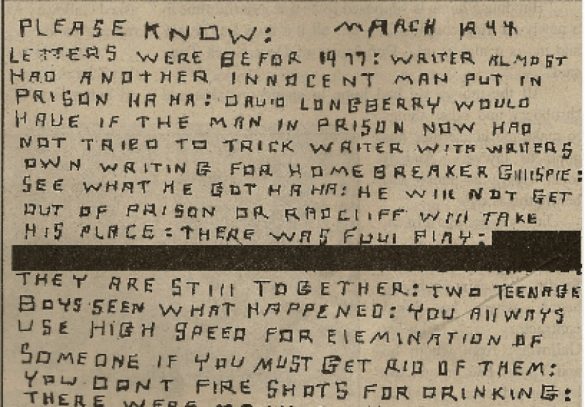 PLEASE KNOW: MARCH 1944
LETTERS WERE BEFOR 1977: WRITER ALMOST
HAD ANOTHER INNOCENT MAN PUT IN
PRISON HA HA: DAVID LONGBERRY WOULD
HAVE IF THE MAN IN PRISON NOW HAD
NOT TRIED TO TRICK WRITER WITH WRITERS
OWN WRITING FOR HOMEBREAKER GILLISPIE:
SEE WHAT HE GOT HA HA: HE WILL NOT GET
OUT OF PRISON OR RADCLIFF WILL TAKE
HIS PLACE: THERE WAS FOUL PLAY:
THEY ARE STILL TOGETHER: TWO TEENAGE
BOYS SEEN WHAT HAPPENED: YOU AllWAYS
USE HIGH SPEED FOR ElEMINATION OF
SOMEONE IF YOU MUST GET RID OF THEM:
YOU DONT FIRE SHOTS FOR DRINKING:
THERE WERE